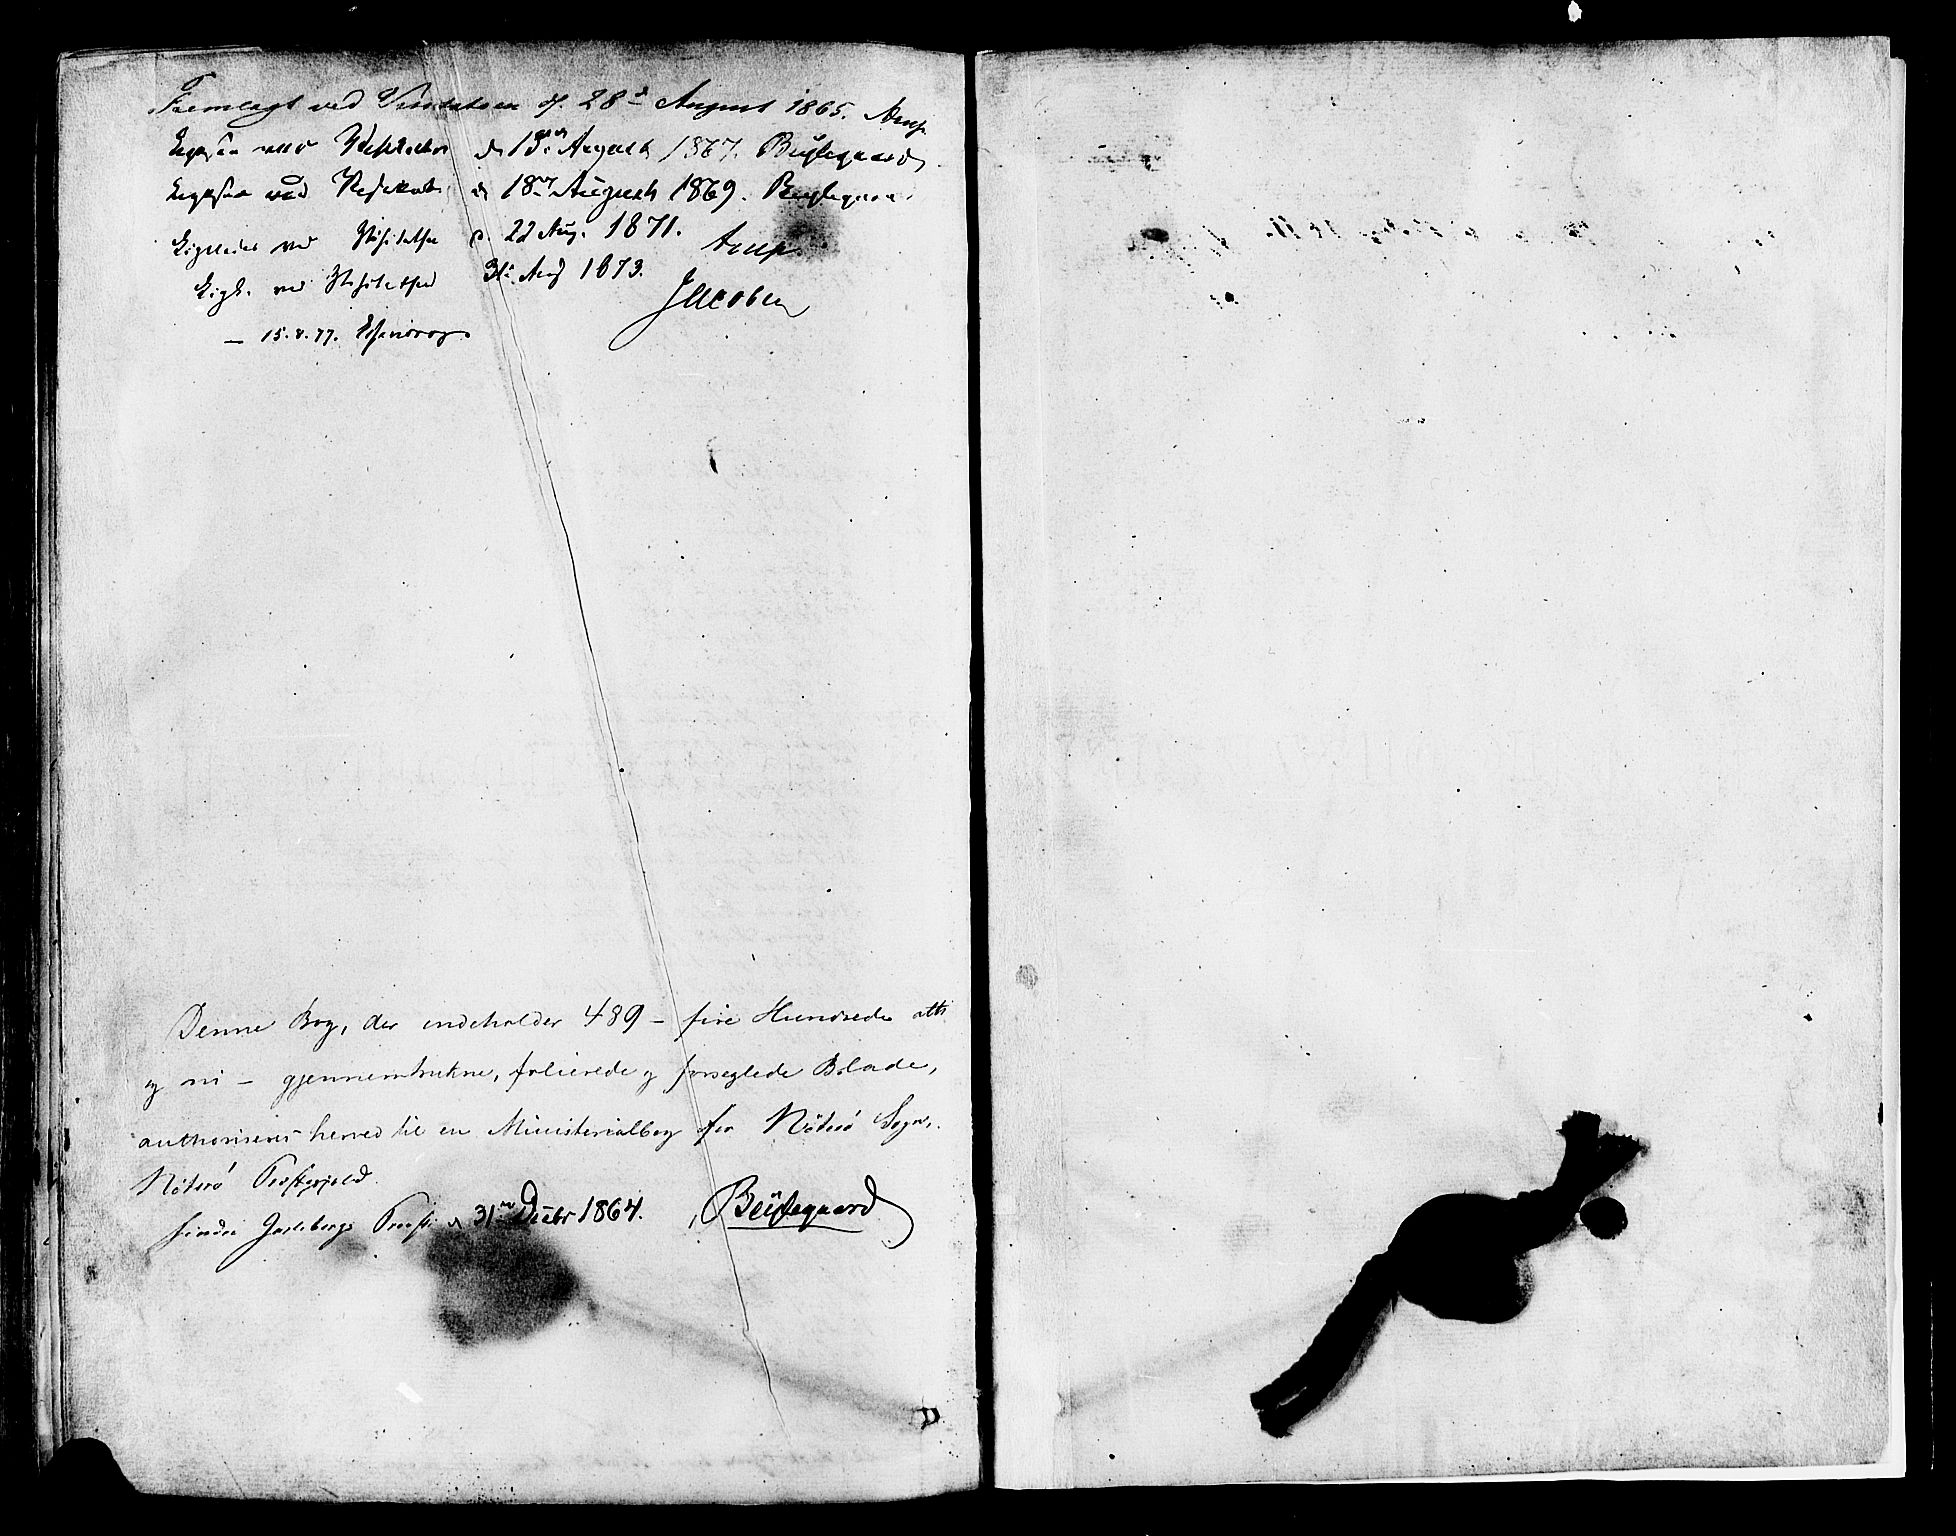 Fremlagt ved Visitatsen d. 28d August 1865. Arup
Ligesaa ved Visitatsen d 13de August 1867. Bugtegaard
Ligesaa ved Visitats d 18de August 1869. Bugtegaar
Ligeledes ved Visitatsen d. 22 Aug. 1871. Arup
Ligl. ved Visitatsen 31. Aug 1873. Jacobsen
— 15.8.77. Essendrop
Denne Bog, der indeholder 489 – fire Hundrede otti
og ni – gjennemtrukne, folierede og forseglede Blade,
authoriseres herved til en Ministerialbog for Nöterö Sogn,
Nöterö Præstegjeld.
Søndre Jarlsbergs Provsti d 31te Decbr 1864. Bugtegaard